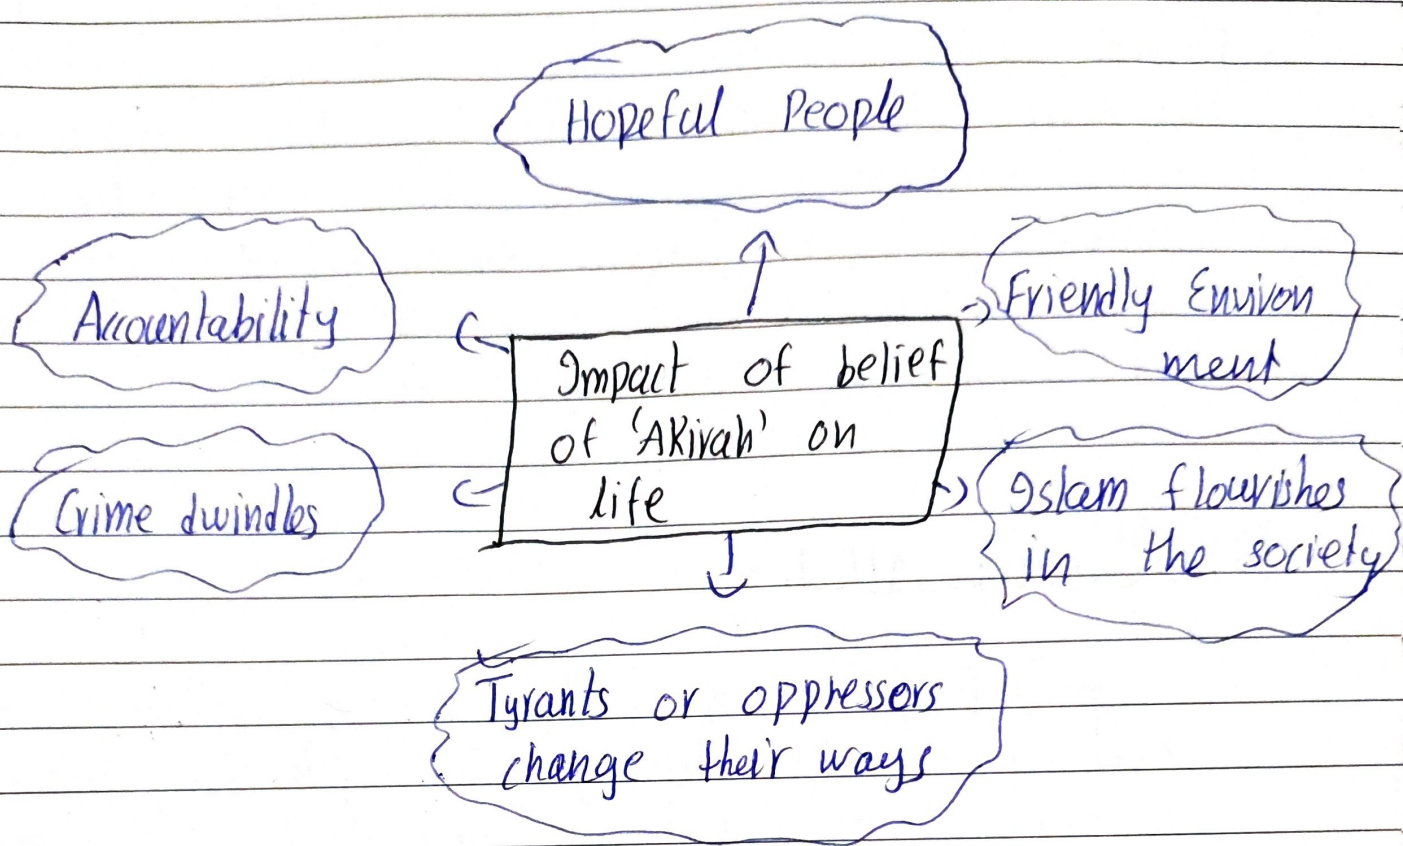 Hopeful People
Accountability
Friendly Environ
ment
Impact of belief
of 'Akirah' on
life
Crime dwindles
Islam flourishes
in the society
Tyrants or oppressors
change their ways